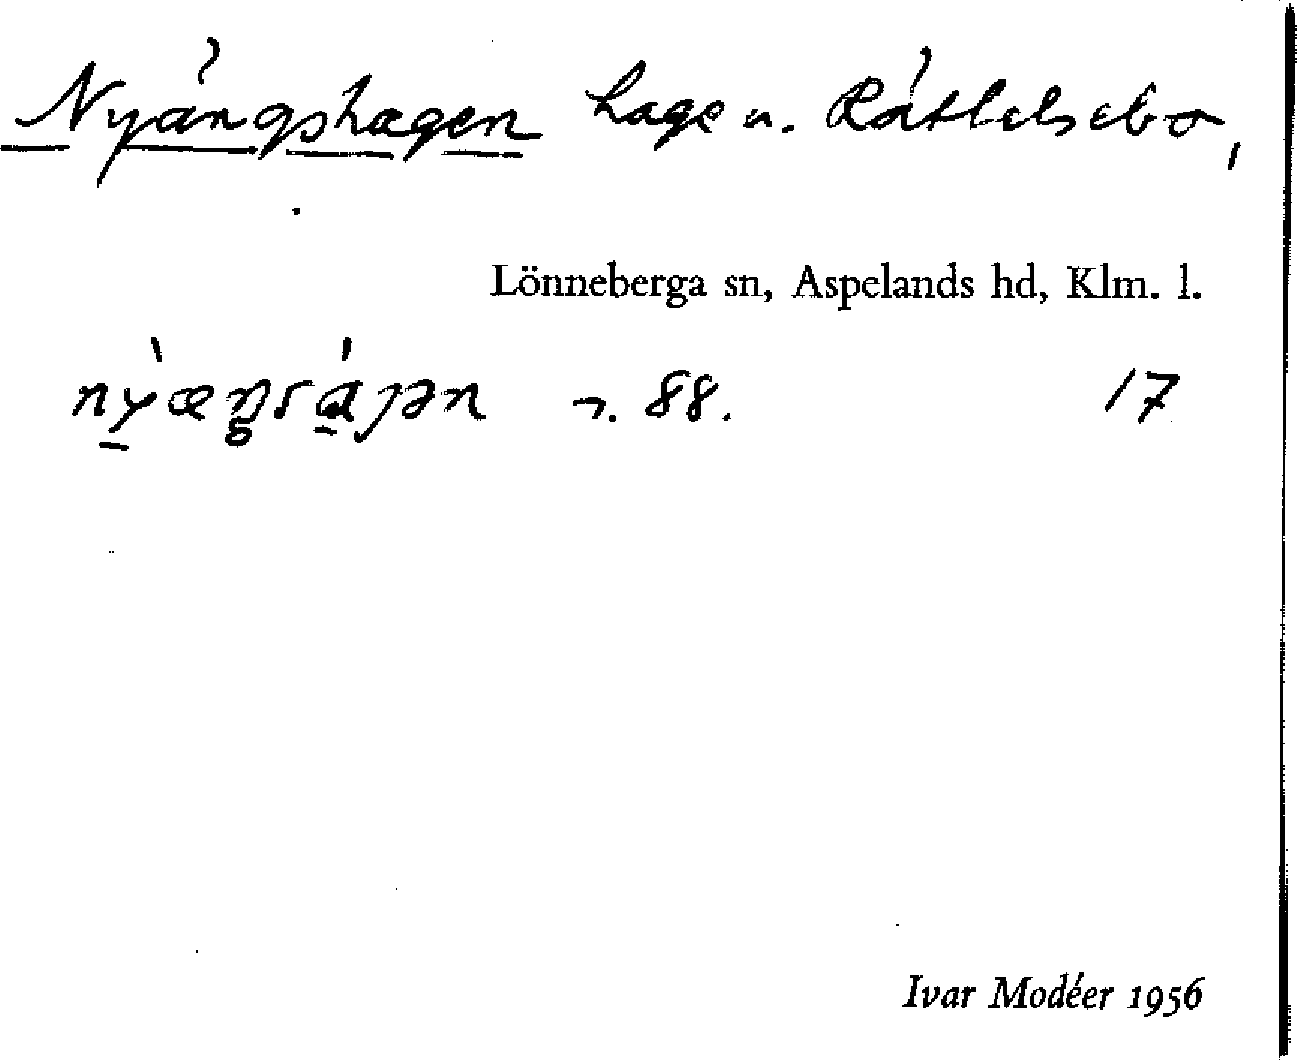 Nyängshagen hage u. Råtlelsebo,
Lönneberga sn, Aspelands hd, Klm. l.
88. 17
Ivar Modéer 1956